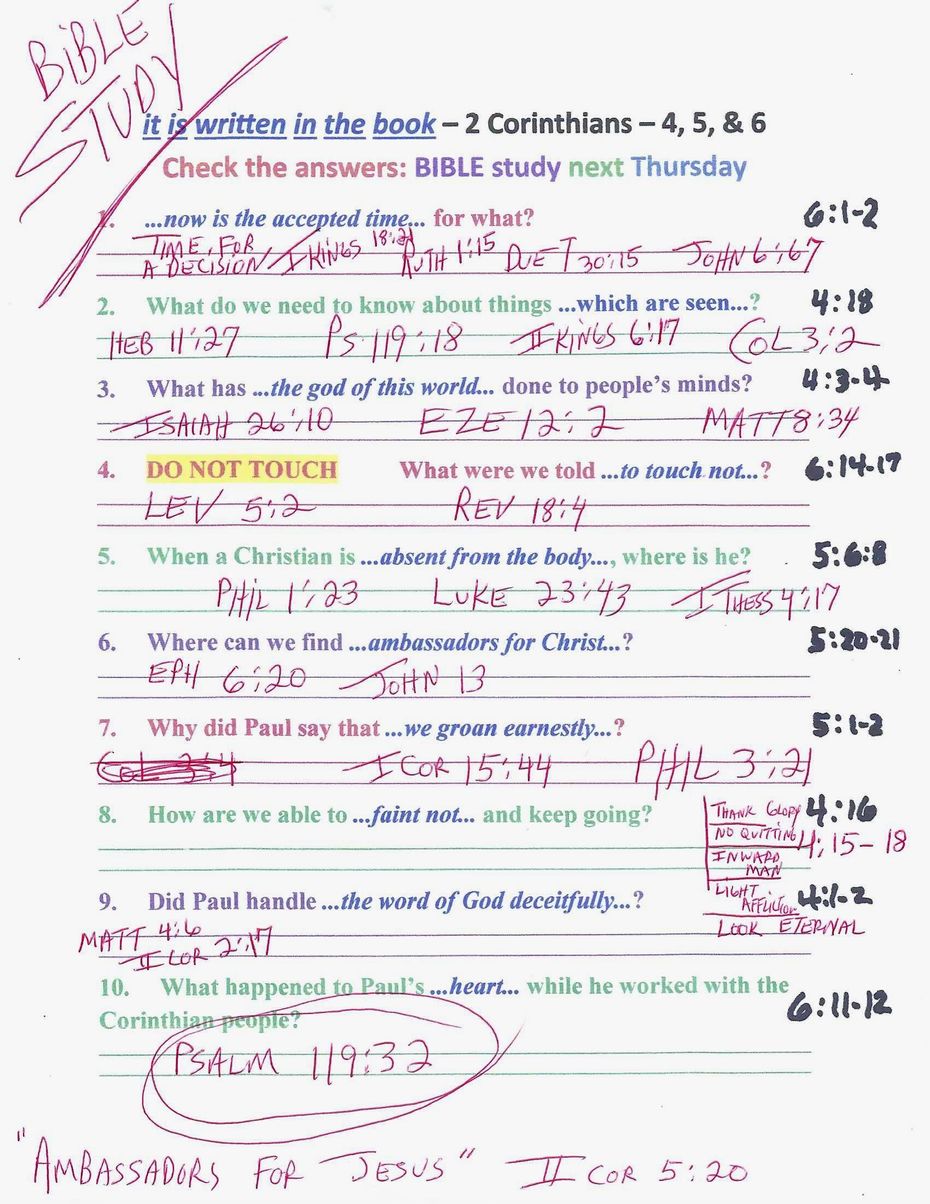 BIBLE
STUDY
it is written in the book – 2 Corinthians – 4, 5, & 6
Check the answers: BIBLE study next Thursday
1. ...now is the accepted time... for what? 6:1-2
TIME FOR
A DECISION / I KINGS 18:21 RUTH 1:15 DUET 30:15 JOHN 6:67
2. What do we need to know about things ...which are seen...? 4:18
HEB 11:27 PS 119:18 II KINGS 6:17 COL 3:2
3. What has ...the god of this world... done to people's minds? 4:3-4
ISAIAH 26:10 EZE 12:2 MATT 8:34
4. DO NOT TOUCH What were we told ...to touch not...? 6:14-17
LEV 5:2 REV 18:4
5. When a Christian is ...absent from the body..., where is he? 5:6:8
PHIL 1:23 LUKE 23:43 I THESS 4:17
6. Where can we find ...ambassadors for Christ...? 5:20-21
EPH 6:20 JOHN 13
7. Why did Paul say that ...we groan earnestly...? 5:1-2
I COR 15:44 PHIL 3:21
8. How are we able to ...faint not... and keep going? 4:16
THANK GLORY
NO QUITTING 4:15-18
INWARD
MAN
LIGHT
AFFLICTION
LOOK ETERNAL
9. Did Paul handle ...the word of God deceitfully...? 4:1-2
MATT 4:6
II COR 2:17
10. What happened to Paul's ...heart... while he worked with the
Corinthian people? 6:11-12
PSALM 119:32
"AMBASSADORS FOR JESUS" II COR 5:20